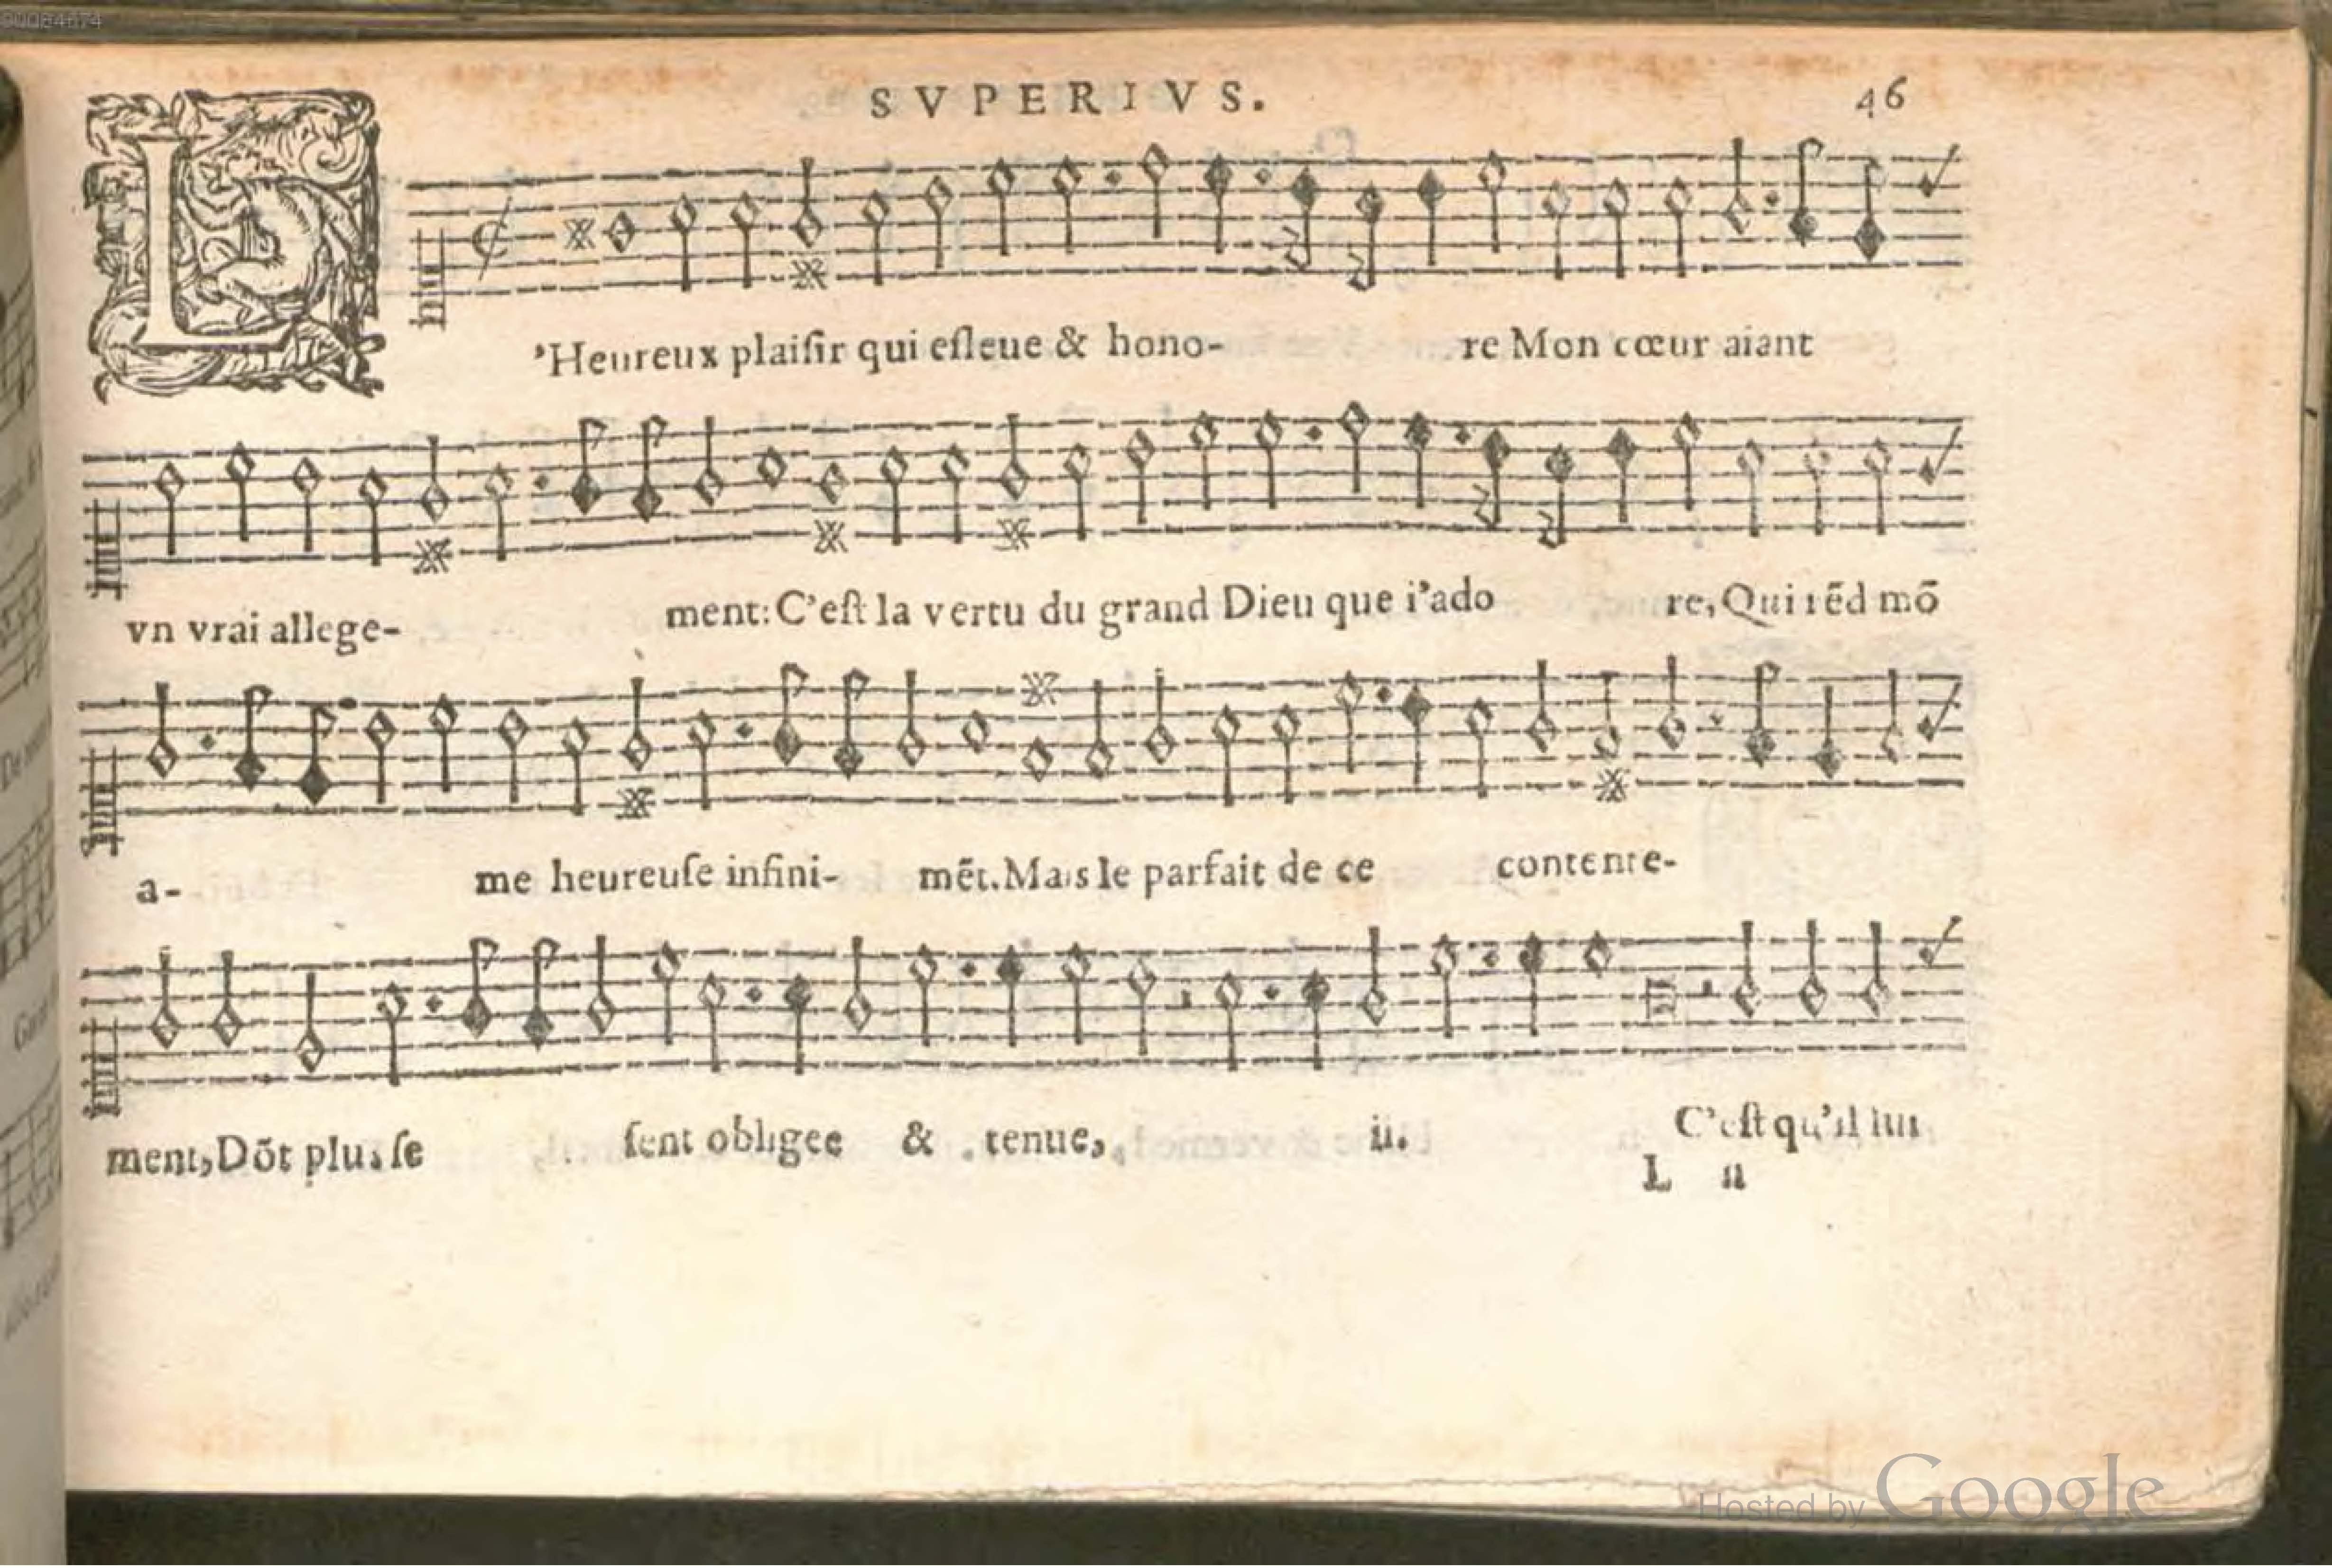 00084674
SVPERIVS. 46
L'Heureux plaiſir qui eſleue & hono- re Mon cœur aiant
vn vrai allege- ment: C'eſt la vertu du grand Dieu que i'ado re, Qui rẽd mõ
a- me heureuſe infini- mẽt. Mais le parfait de ce contente-
ment, Dõt plus ſe ſent obligee & tenue, ii. C'eſt qu'il lui
L ii
Hosted by Google